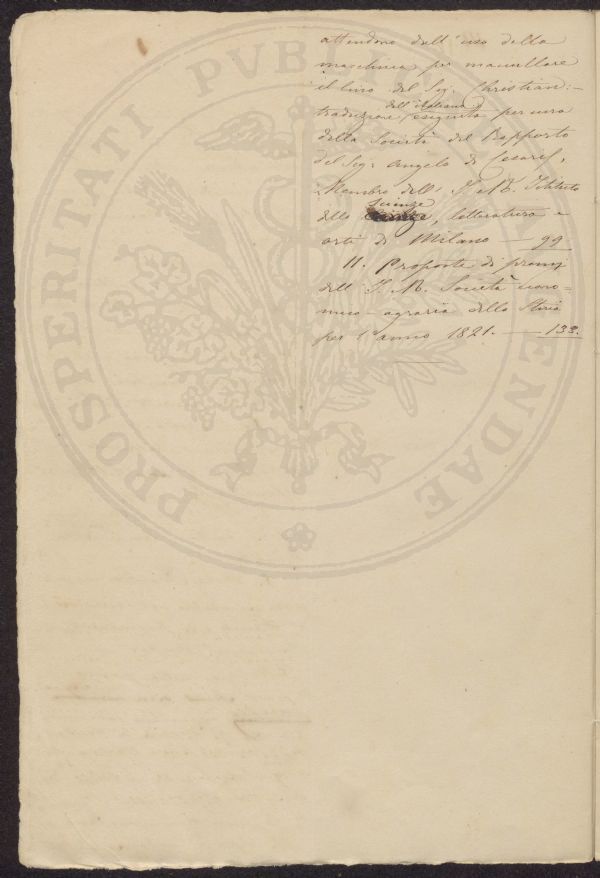 attendono dall'uso della
macchina per maciullare
il lino del Sig. Christian: –
dall'italiano
traduzione eseguita per cura
della Società del Rapporto
del Sig. Angelo de Cesaris,
Membro dell' I. R. Istituto
Scienze
delle, letteratura e
arti di Milano — 99
11. Proposte di premj
dell' I. R. Società econo=
mico-agraria della Stiria
per l'anno 1821. — 133.
PROSPERITATI PVBLICAE AVGENDAE